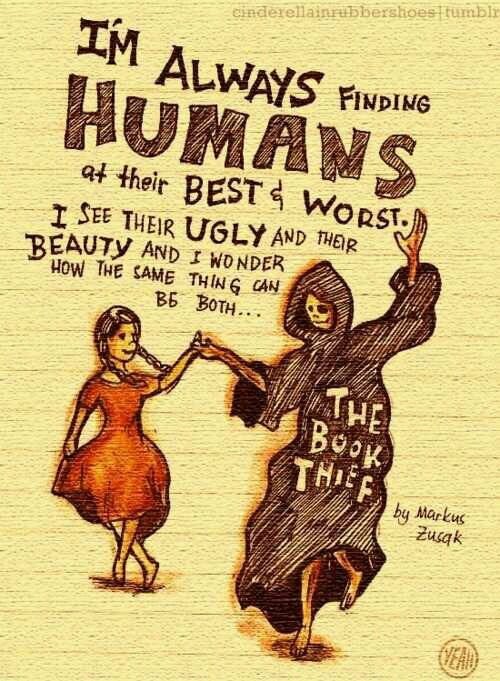 cinderellainrubbershoes|tumblr
I'M ALWAYS FINDING
HUMANS
at their BEST & WORST.
I SEE THEIR UGLY AND THEIR
BEAUTY AND I WONDER
HOW THE SAME THING CAN
BE BOTH...
THE
BOOK
THIEF
by Markus
Zusak
YEAH